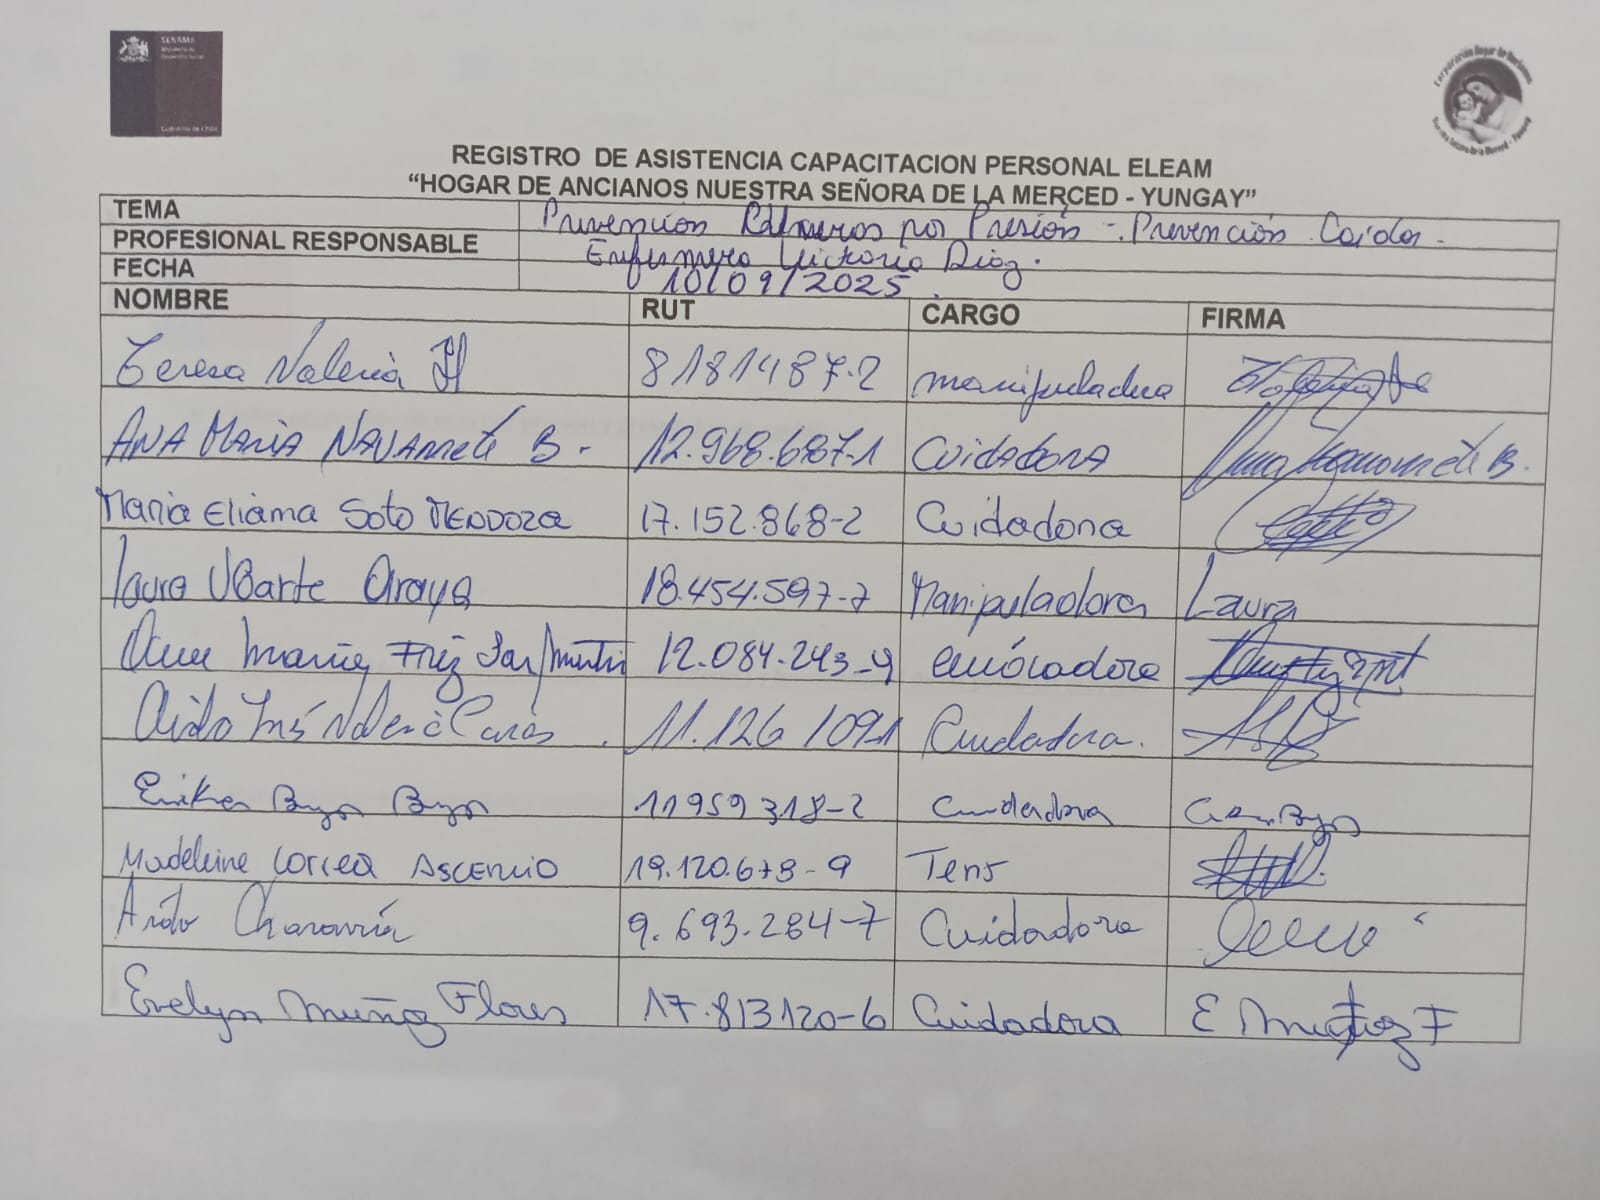 SENAMA
Ministerio de
Desarrollo Social
Gobierno de Chile
Corporación Hogar de Ancianos
Nuestra Señora de la Merced - Yungay
REGISTRO DE ASISTENCIA CAPACITACION PERSONAL ELEAM
“HOGAR DE ANCIANOS NUESTRA SEÑORA DE LA MERCED - YUNGAY”
TEMA Prevención por Presión - Prevención Caídas -
PROFESIONAL RESPONSABLE Enfermera Victoria Díaz.
FECHA 10/09/2025
NOMBRE RUT CARGO FIRMA
Teresa Valeria H 8181487-2 manipuladora
ANA MARIA NAVARRETE B - 12.968.687-1 CUIDADORA Ana Navarrete B.
Maria Eliama Soto Mendoza 17.152.868-2 Cuidadora
Laura Ubarte Araya 18.454.597-7 Manipuladora Laura
Ana Maria Friz San Martin 12.084.243-9
Aida Inés 11.126 109-1 Cuidadora.
Erika 11959318-2 Cuidadora
Madeleine Correa Ascencio 19.120.678-9 Tens
Chavarría 9.693.284-7 Cuidadora
Evelyn Muñoz Flores 17.813120-6 Cuidadora E Muñoz F